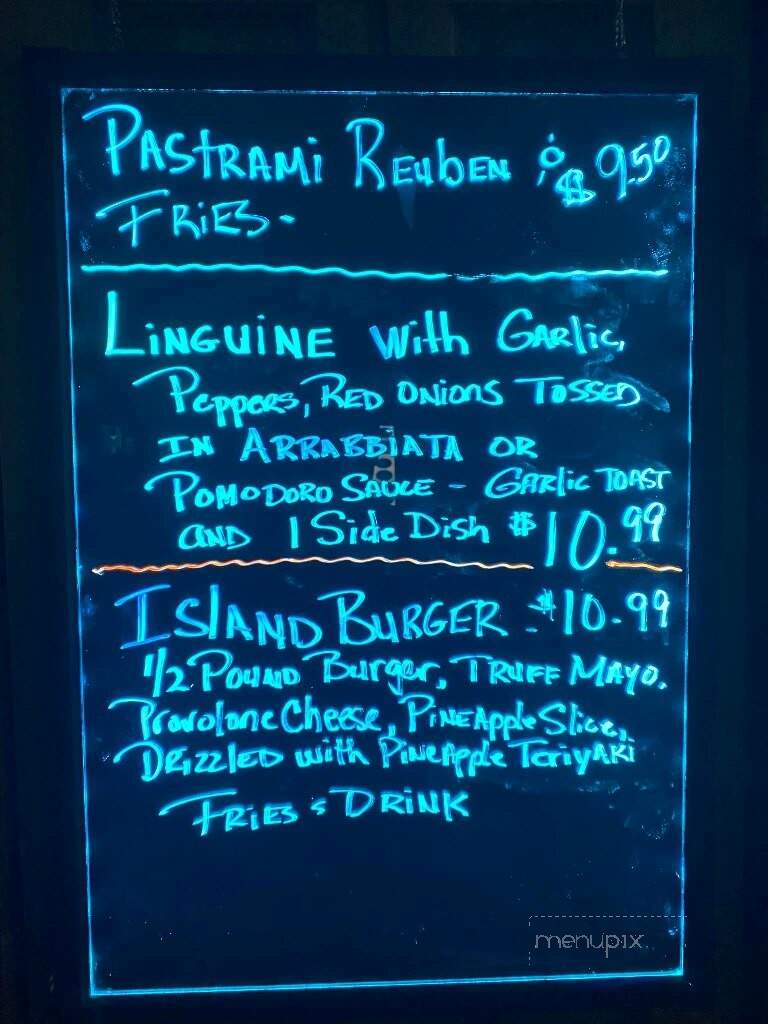 PASTRAMI REUBEN & $9.50
FRIES-
LINGUINE with GARLIC,
Peppers, RED ONIONS TOSSED
IN ARRABBIATA OR
POMODORO SAUCE - GARLIC TOAST
AND 1 Side Dish $10.99
ISLAND BURGER - $10.99
1/2 POUND Burger, TRUFF MAYO.
Provolone Cheese, PINEApple Slice,
DRIZZLED with PINEApple TeriyAKI
FRIES & DRINK
menupix